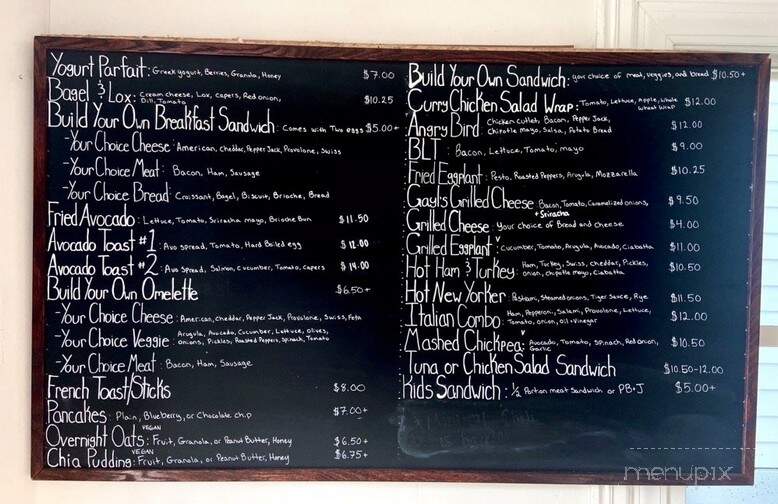 Yogurt Parfait: Greek yogurt, Berries, Granola, Honey $7.00
Bagel & Lox: Cream cheese, Lox, capers, Red onion, $10.25
Dill, Tomato
Build Your Own Breakfast Sandwich: Comes with Two eggs $5.00+
-Your Choice Cheese: American, cheddar, Pepper Jack, Provolone, Swiss
-Your Choice Meat: Bacon, Ham, Sausage
-Your Choice Bread: Croissant, Bagel, Biscuit, Brioche, Bread
Fried Avocado: Lettuce, Tomato, Sriracha mayo, Brioche Bun $11.50
Avocado Toast #1: Avo spread, Tomato, Hard Boiled egg $12.00
Avocado Toast #2: Avo spread, Salmon, Cucumber, Tomato, Capers $14.00
Build Your Own Omelette $6.50+
-Your Choice Cheese: American, cheddar, Pepper Jack, Provolone, Swiss, Feta
-Your Choice Veggie: Arugula, Avocado, Cucumber, Lettuce, olives,
onions, Pickles, Roasted Peppers, Spinach, Tomato
-Your Choice Meat: Bacon, Ham, Sausage
French Toast/Sticks $8.00
Pancakes: Plain, Blueberry, or Chocolate chip $7.00+
VEGAN
Overnight Oats: Fruit, Granola, or Peanut Butter, Honey $6.50+
VEGAN
Chia Pudding: Fruit, Granola, or Peanut Butter, Honey $6.75+
Build Your Own Sandwich: your choice of meat, veggies, and bread $10.50+
Curry Chicken Salad Wrap: Tomato, Lettuce, Apple, Whole $12.00
Wheat Wrap
Angry Bird: Chicken cutlet, Bacon, Pepper Jack, $12.00
Chipotle mayo, Salsa, Potato Bread
BLT: Bacon, Lettuce, Tomato, mayo $9.00
Fried Eggplant: Pesto, Roasted Peppers, Arugula, Mozzarella $10.25
Gayl's Grilled Cheese Bacon, Tomato, Caramelized onions, $9.50
+Sriracha
Grilled Cheese: Your choice of Bread and cheese $4.00
V
Grilled Eggplant: Cucumber, Tomato, Arugula, Avocado, Ciabatta $11.00
Hot Ham & Turkey: Ham, Turkey, Swiss, cheddar, Pickles, $10.50
onion, chipotle mayo, Ciabatta
Hot New Yorker: Pastrami, Steamed onions, Tiger Sauce, Rye $11.50
Italian Combo: Ham, Pepperoni, Salami, Provolone, Lettuce, $12.00
Tomato, onion, oil + Vinegar
V
Mashed Chickpea: Avocado, Tomato, Spinach, Red onion, $10.50
Garlic
Tuna or Chicken Salad Sandwich $10.50-12.00
Kids Sandwich: 1/2 Portion meat Sandwich or PB+J $5.00+
menupix